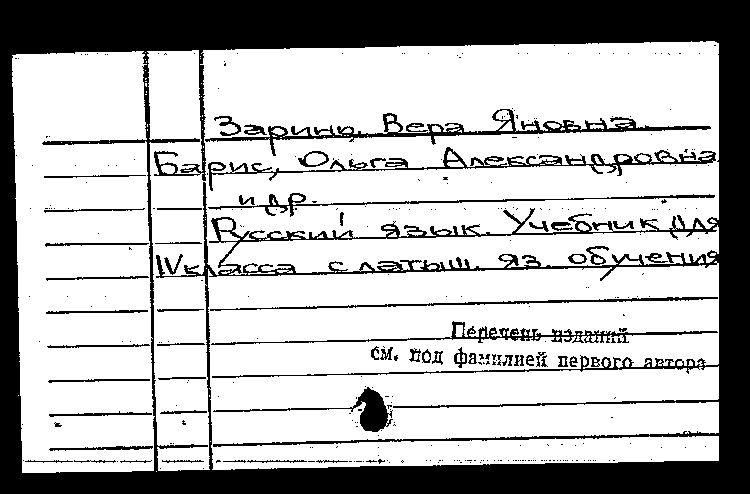 Заринь, Вера Яновна.
Барис, Ольга Александровна
и др.
Русский язык. Учебник для
IV класса с латыш. яз. обучения
Перечень изданий
см. под фамилией первого автора